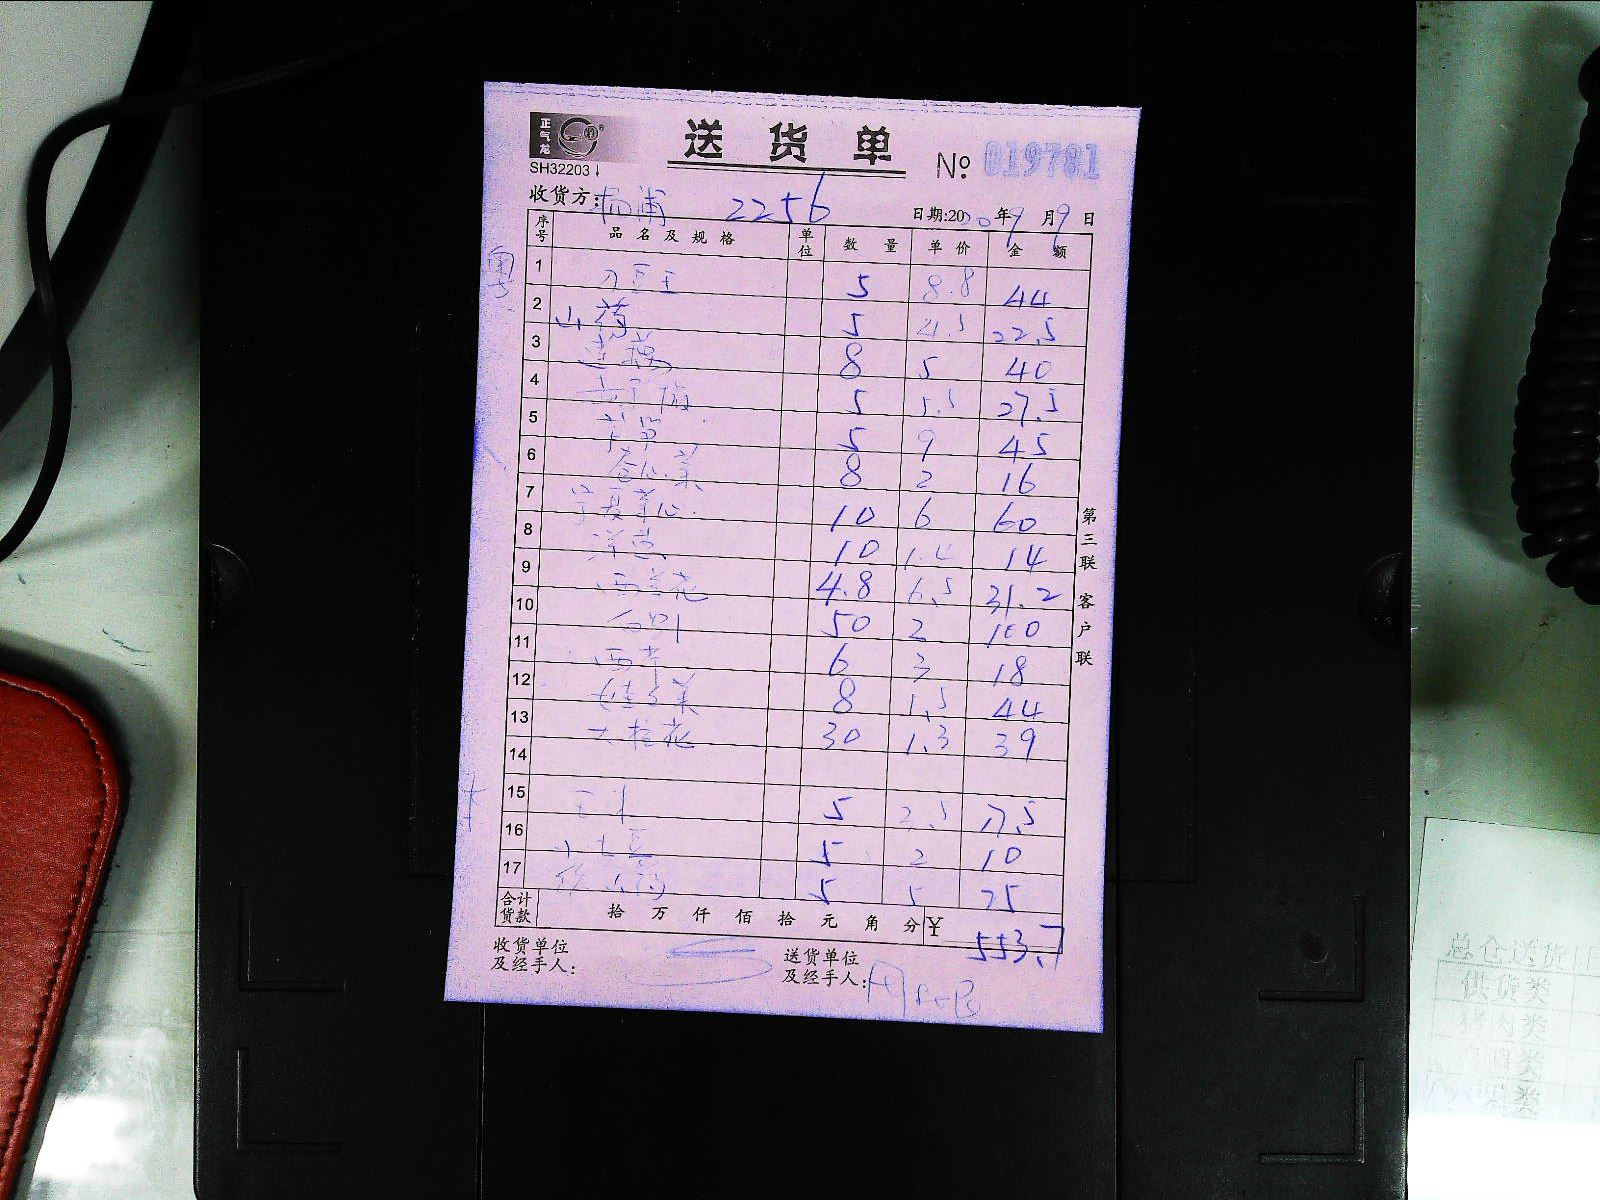 正气龙
SH32203
送货单 № 019781
收货方: 杨浦 2256 日期:2020年9月9日
序号 品名及规格 单位 数量 单价 金额
1 刀豆王 5 8.8 44
2 山药 5 4.5 22.5
3 莲藕 8 5 40
4 5 5.5 27.5
5 5 9 45
6 卷心菜 8 2 16
7 宁夏菜心 10 6 60
8 洋葱 10 1.4 14
9 西兰花 4.8 6.5 31.2
10 50 2 100
11 西芹 6 3 18
12 娃娃菜 8 44
13 30 1.3 39
14
15 玉米 5 17.5
16 小土豆 5 2 10
17 5 5 25
合计货款 拾 万 仟 佰 拾 元 角 分 ¥ 553.7
收货单位及经手人:
送货单位及经手人:
第三联 客户联
总仓送货
供货类
猪肉类